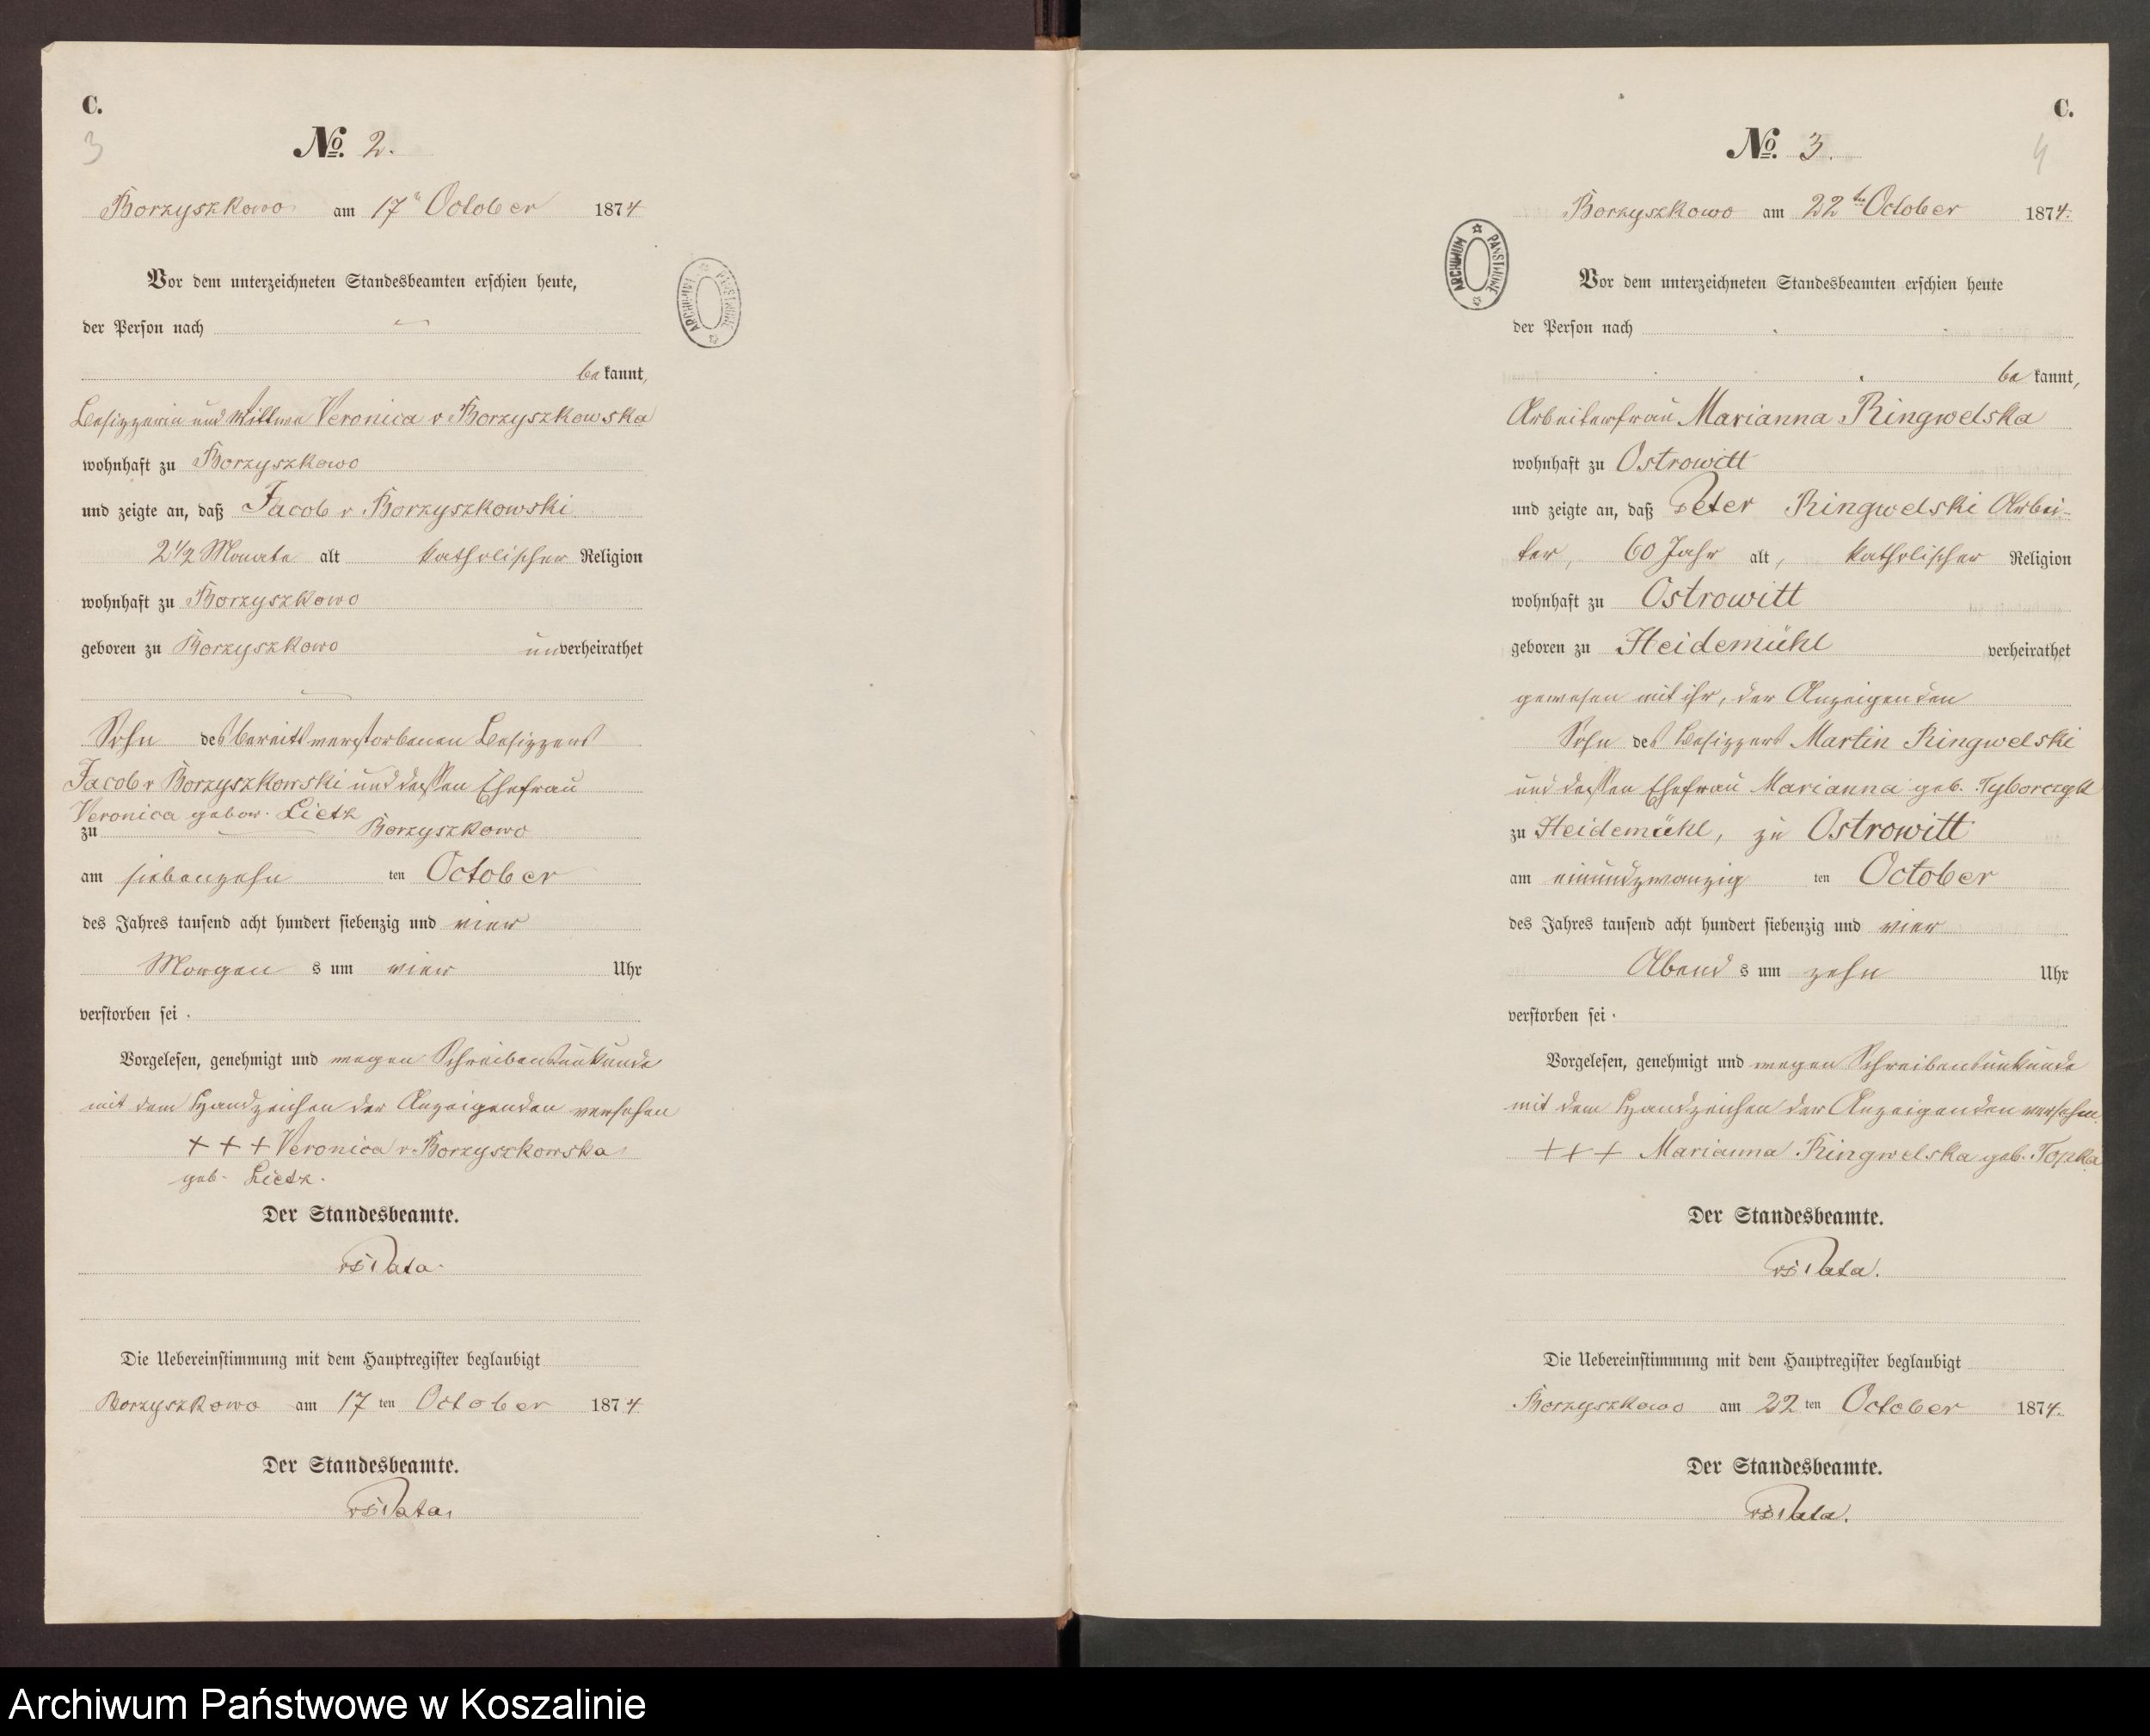 C.
3
No. 2.
Borzyszkowo am 17 October 1874
Vor dem unterzeichneten Standesbeamten erschien heute,
der Person nach
bekannt,
Besizzerin und Wittwe Veronica v Borzyszkowska
wohnhaft zu Borzyszkowo
und zeigte an, daß Jacob v Borzyszkowski
2 1/2 Monate alt katholischer Religion
wohnhaft zu Borzyszkowo
geboren zu Borzyszkowo unverheirathet
Sohn des bereits verstorbenen Besizzers
Jacob v Borzyszkowski und dessen Ehefrau
Veronica gebor. Lietz
zu Borzyszkowo
am siebenzehn ten October
des Jahres tausend acht hundert siebenzig und vier
Morgen s um vier Uhr
verstorben sei.
Vorgelesen, genehmigt und wegen Schreibensunkunde
mit dem Handzeichen der Anzeigenden versehen
+ + + Veronica v Borzyszkowska
geb. Lietz.
Der Standesbeamte.
Pata.
Die Uebereinstimmung mit dem Hauptregister beglaubigt
Borzyszkowo am 17 ten October 1874
Der Standesbeamte.
Pata.
ARCHIWUM PAŃSTWOWE
C.
4
No. 3.
Borzyszkowo am 22ten October 1874.
ARCHIWUM PAŃSTWOWE
Vor dem unterzeichneten Standesbeamten erschien heute
der Person nach
bekannt,
Arbeiterfrau Marianna Ringwelska
wohnhaft zu Ostrowitt
und zeigte an, daß Peter Ringwelski Arbei-
ter, 60 Jahr alt, katholischer Religion
wohnhaft zu Ostrowitt
geboren zu Heidemühl verheirathet
gewesen mit ihr, der Anzeigenden
Sohn des Besizzers Martin Ringwelski
und dessen Ehefrau Marianna geb. Tyborczyk
zu Heidemühl, zu Ostrowitt
am einundzwanzig ten October
des Jahres tausend acht hundert siebenzig und vier
Abend s um zehn Uhr
verstorben sei.
Vorgelesen, genehmigt und wegen Schreibensunkunde
mit dem Handzeichen der Anzeigenden versehen.
+ + + Marianna Ringwelska geb. Topka
Der Standesbeamte.
Pata.
Die Uebereinstimmung mit dem Hauptregister beglaubigt
Borzyszkowo am 22 ten October 1874.
Der Standesbeamte.
Pata.
Archiwum Państwowe w Koszalinie